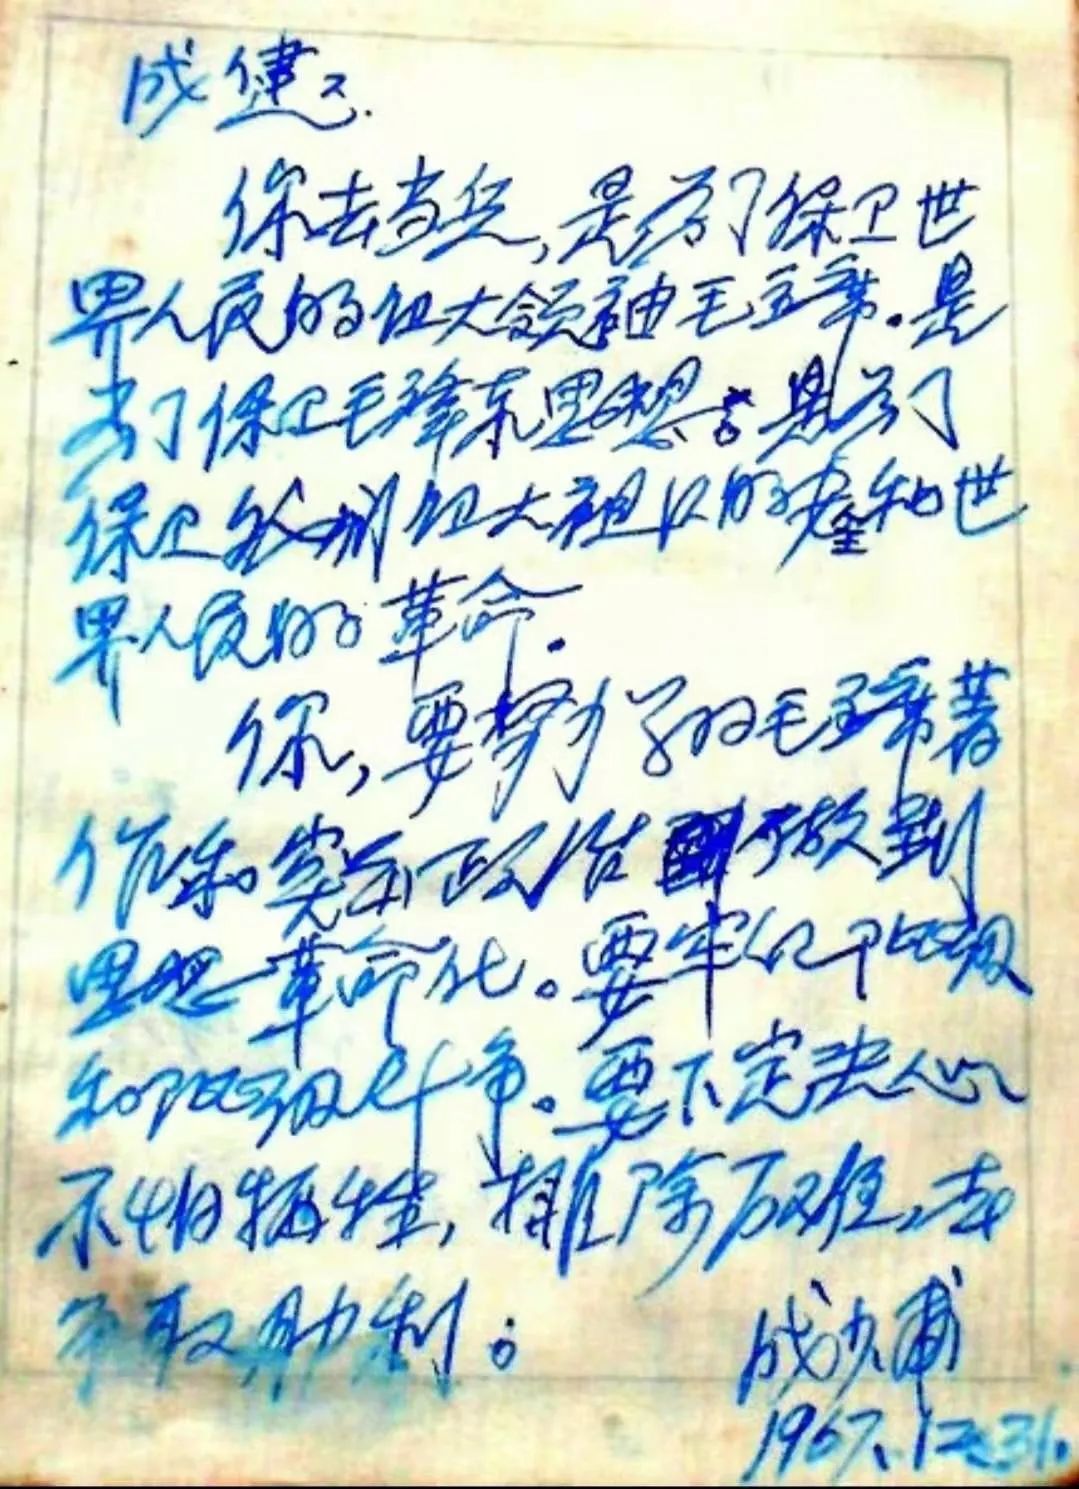 成健:
你去当兵,是为了保卫世
界人民的伟大领袖毛主席.是
为了保卫毛泽东思想。是为了
保卫我们伟大祖国的 和世
界人民的革命.
你,要努力学习毛主席著
作和突出政治 做到
思想革命化。要牢记阶级
和阶级斗争。要下定决心
不怕牺牲,排除万难,去
争取胜利。
成少甫
1967.12.31.